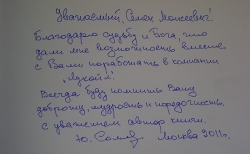 Уважаемый, Семен Моисеевич!
Благодарю судьбу и Бога, что
дали мне возможность вместе
с Вами поработать в компании
Всегда буду помнить Вашу
доброту, мудрость и порядочность.
с уважением автор книги.
Ю. Москва 2011г.